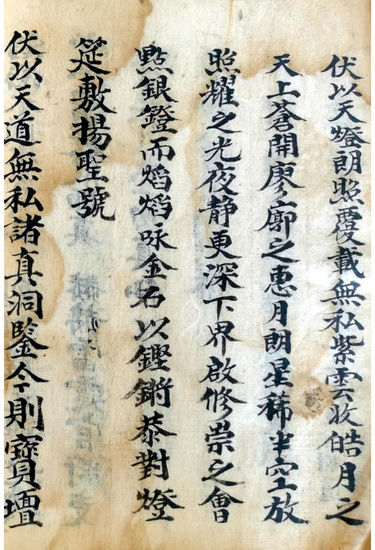 伏以天燈朗照覆載無私紫雲收皓月之
天上蒼開廖廓之惠月朗星稀半空放
照耀之光夜静更深下界啟修崇之會
點銀鐙而熖熖咏金石以鏗鏘恭對燈
筵敷揚聖號
伏以天道無私諸真洞鑒今則寶壇